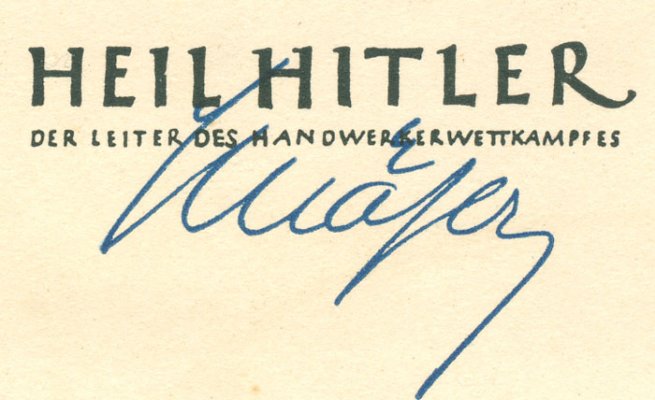 HEIL HITLER
DER LEITER DES HANDWERKERWETTKAMPFES